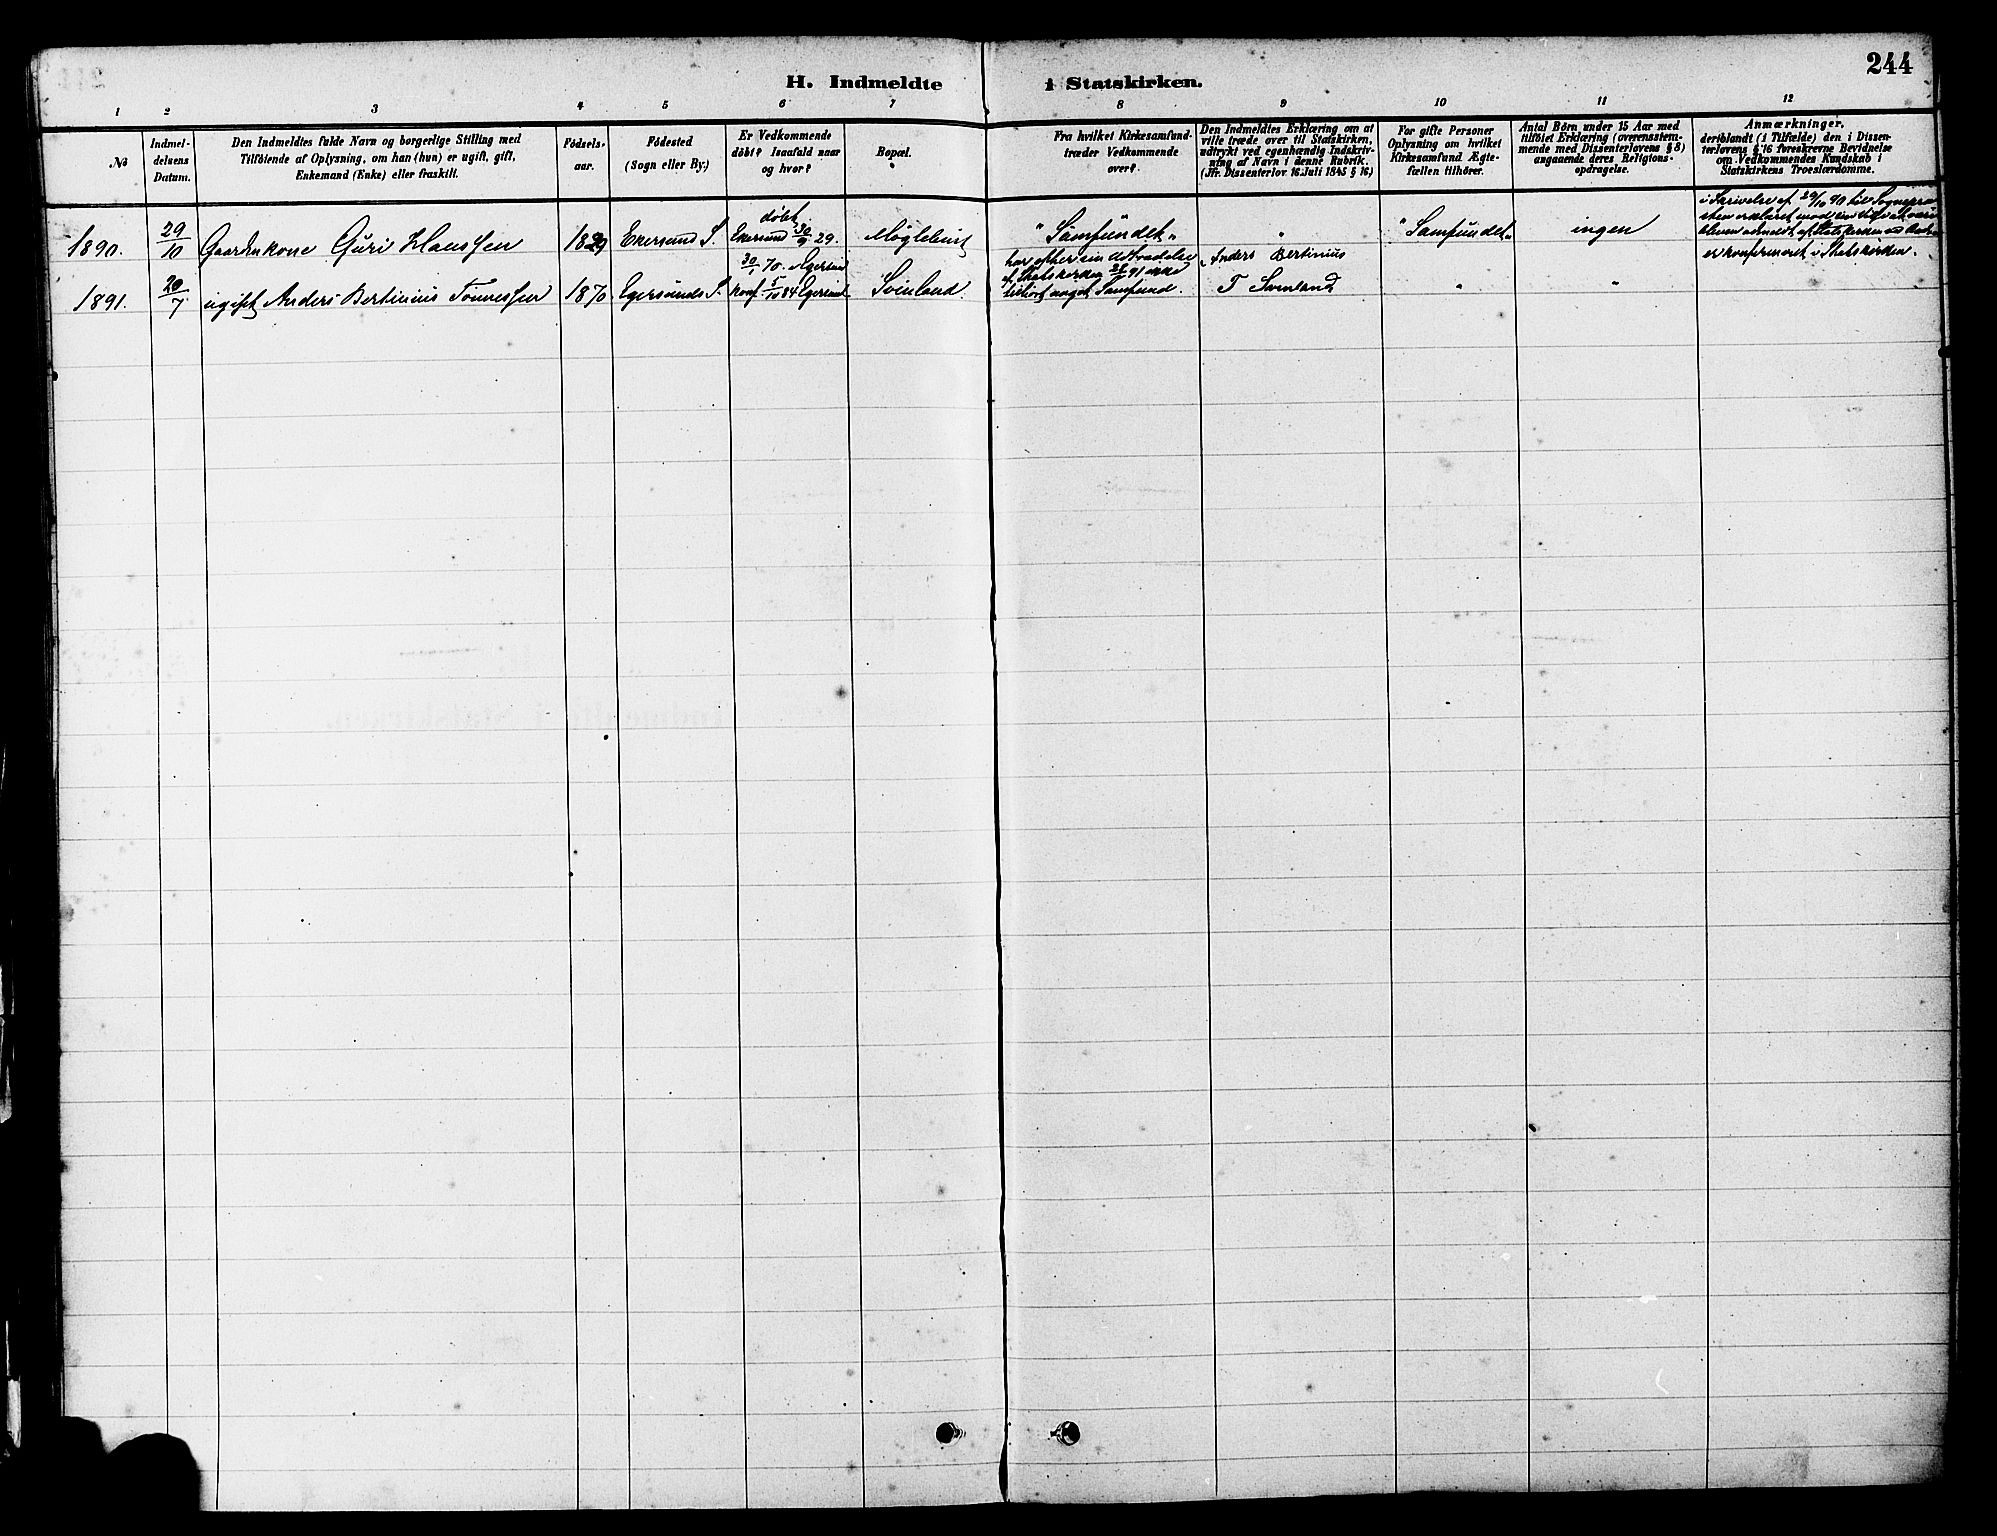 244
H. Indmeldte i Statskirken.
1 2 3 4 5 6 7 8 9 10 11 12
No
Indmel-
delsens
Datum.
Den Indmeldtes fulde Navn og borgerlige Stilling med
Tilföiende af Oplysning, om han (hun) er ugift, gift,
Enkemand (Enke) eller fraskilt.
Födsels-
aar.
Födested
(Sogn eller By.)
Er Vedkommende
döbt? Isaafald naar
og hvor?
Bopæl.
Fra hvilket Kirkesamfund
træder Vedkommende
over?
Den Indmeldtes Erklæring om at
ville træde over til Statskirken,
udtrykt ved egenhændig Indskriv-
ning af Navn i denne Rubrik.
(Jfr. Dissenterlov 16. Juli 1845 § 16.)
For gifte Personer
Oplysning om hvilket
Kirkesamfund Ægte-
fællen tilhörer.
Antal Börn under 15 Aar med
tilföiet Erklæring (overensstem-
mende med Dissenterlovens § 8)
angaaende deres Religions-
opdragelse.
Anmærkninger,
deriblandt (i Tilfælde) den i Dissen-
terlovens § 16 foreskrevne Bevidnelse
om Vedkommendes Kundskab i
Statskirkens Troeslærdomme.
1890.
29/10
Gaardmkone Guri Hanssen
1829
Ekersund S.
döbt
Ekersund 30/9 29.
Møglebust
"Samfundet"
"
"Samfundet"
ingen
i Skrivelse af 29/10 90 til Sognepræ
sten erklæret mod sin
bleven udmeldt af Statskirken
er konfirmeret i Statskirken.
1891.
20/7
ugift Anders Bertinius Tønnessen
1870
Egersunds S.
30/1 70. i Egersund
Konf. 5/10 84 Egersund
Svinland.
har efter sin Udtrædelse
af Statskirken 21/1 91 ikke
tilhört noget Samfund.
Anders Bertinius
T Svinland
"
"